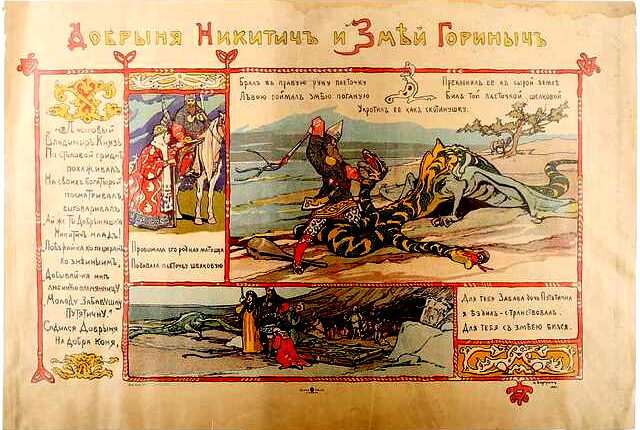 Добрыня Никитичъ и Змѣй Гориныч
Ласковый
Владимиръ Князь
По столовой гридне
похаживалъ
На своихъ богатырей
посматривалъ,
выговаривалъ
Ай же ты Добрынюшка
Никитичъ младъ!
Поѣзжай-ка ко пещерамъ
ко змѣинымъ,
Добывай-ка мнѣ
любимую племянницу
Молоду Забавушку
Путятичну."
Садился Добрыня
На добра коня,
Провожала его родная матушка
Подавала плеточку шелковую
Бралъ въ правую руку плеточку
Лѣвою поймалъ змѣю поганую
Укротилъ ее какъ скотинушку.
Преклонилъ ее къ сырой землѣ
Билъ той плеточкой шелковой
Для тебя Забава дочь Путятична
я ѣздилъ-странствовалъ.
Для тебя съ змѣею бился.